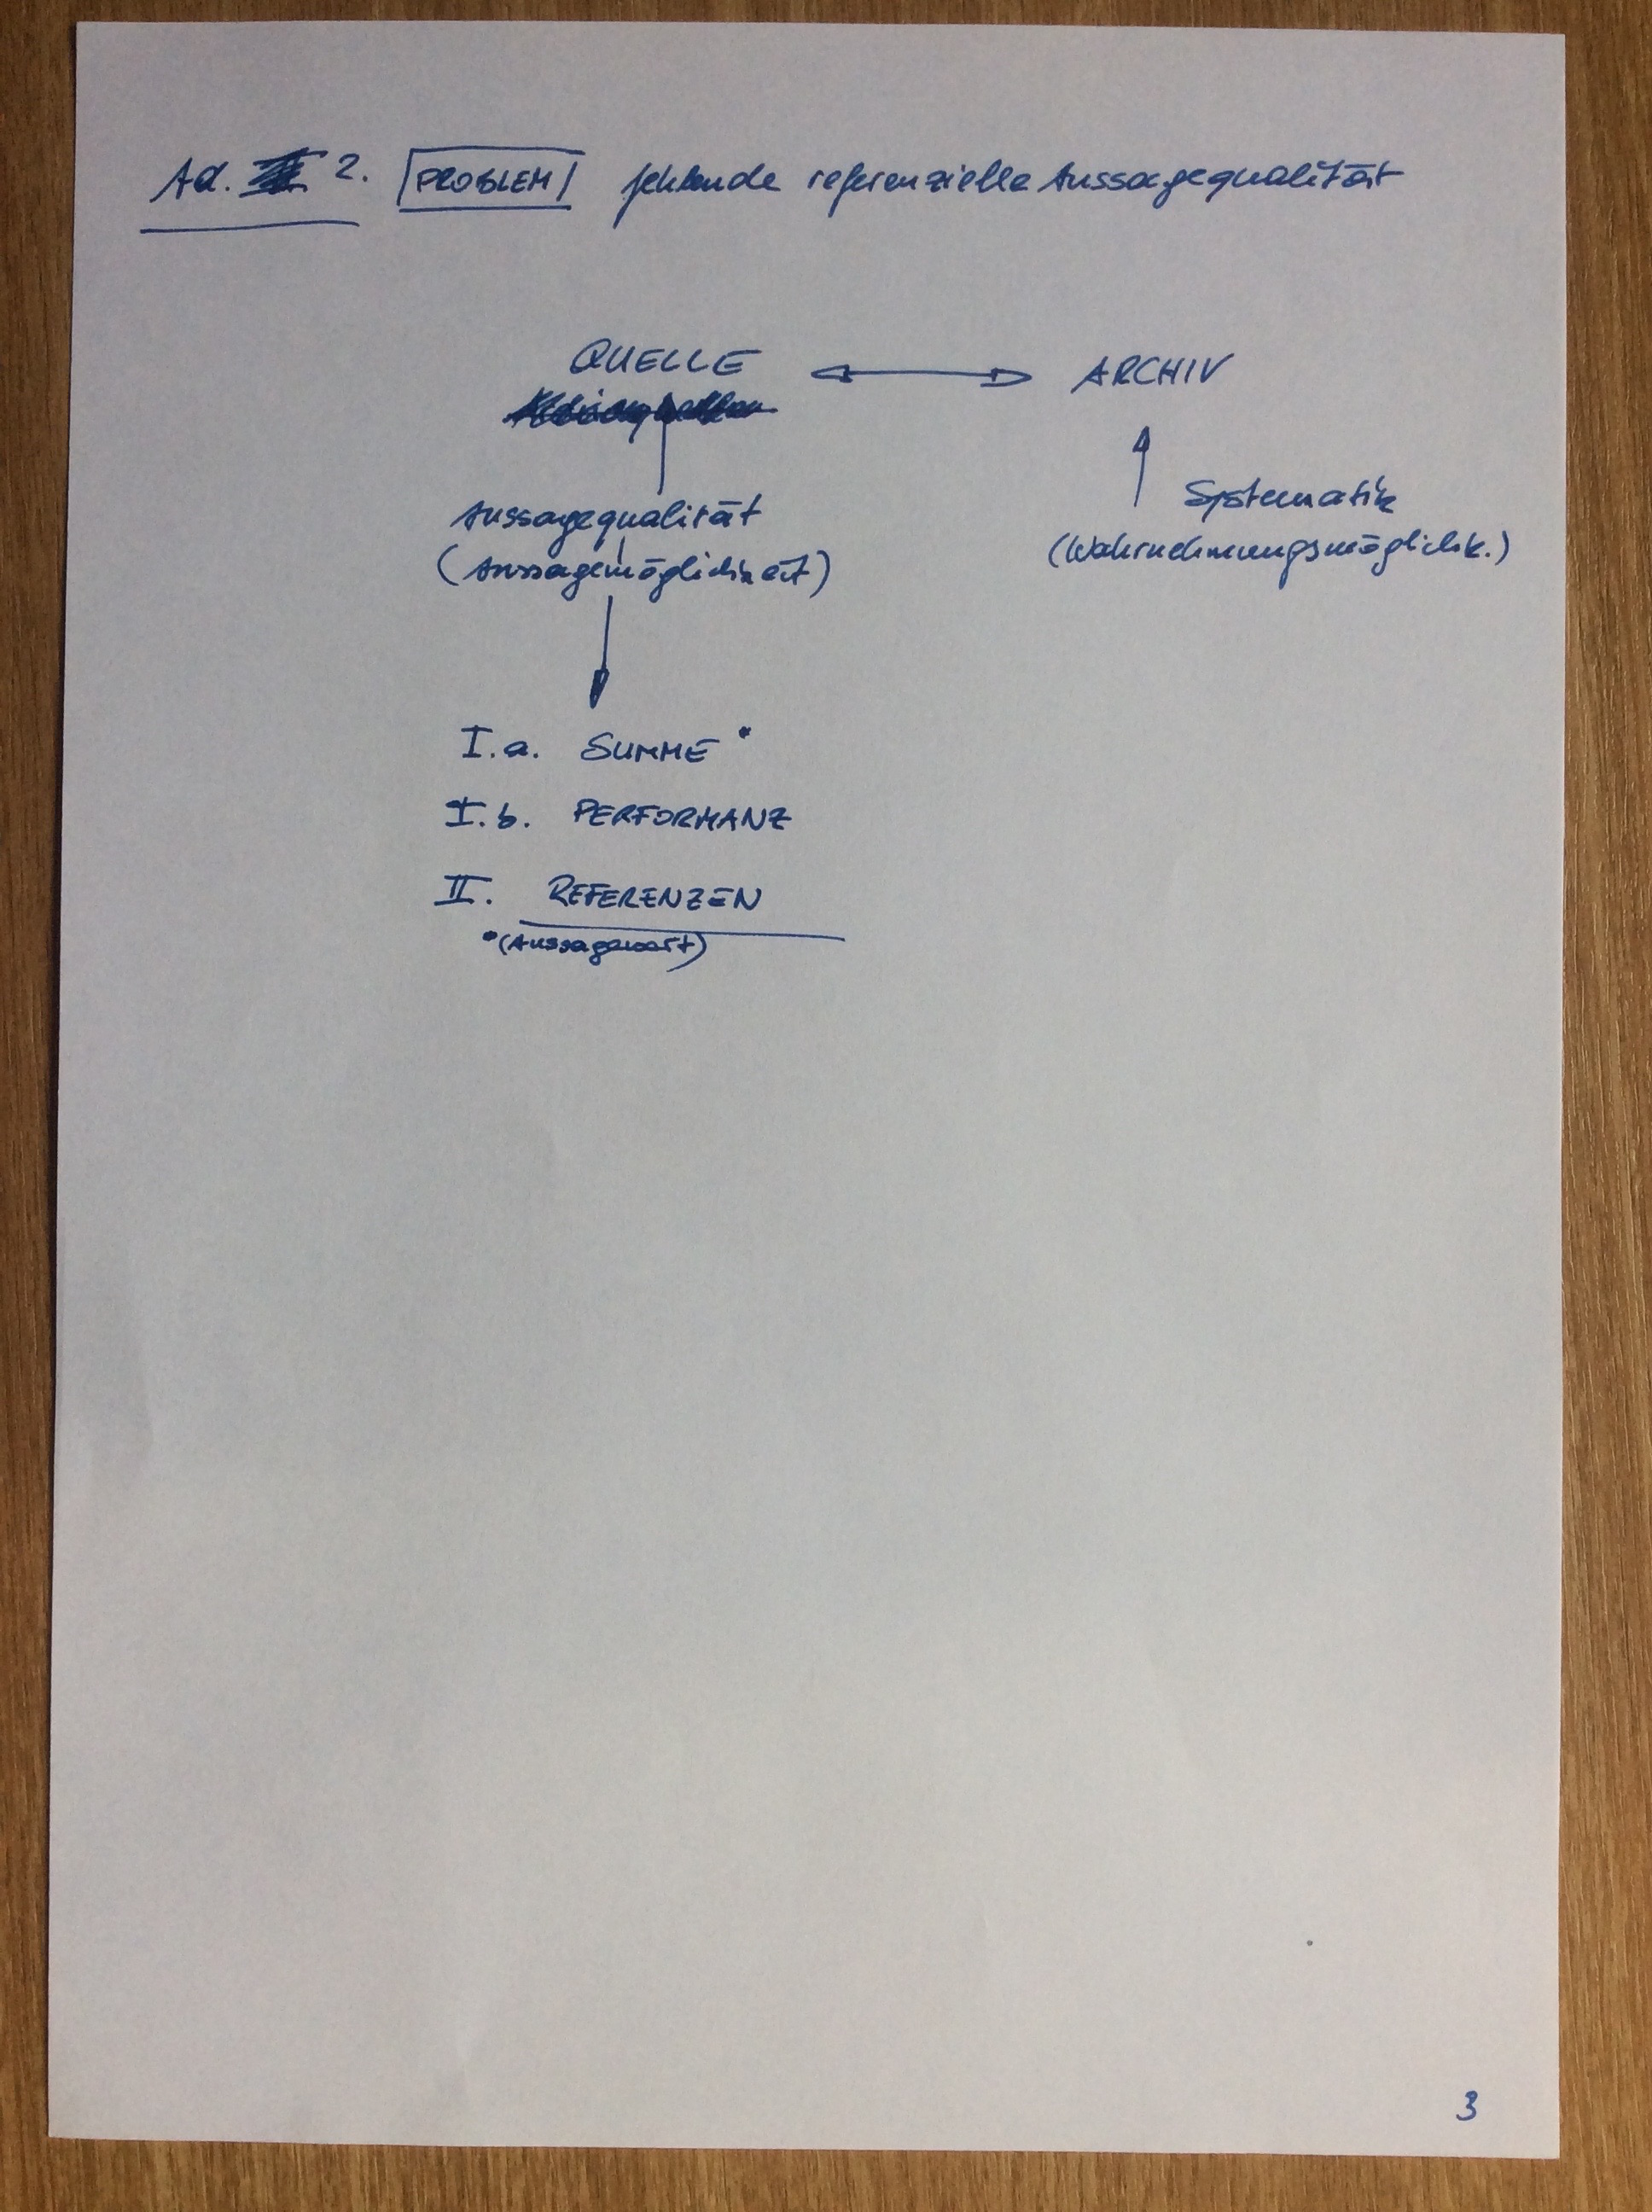 Ad. 2. PROBLEM fehlende referenzielle Aussagequalität
QUELLE ARCHIV
Aussagequalität
(Aussagemöglichkeit)
Systematik
(Wahrnehmungsmöglichk.)
I.a. SUMME *
I.b. PERFORMANZ
II. REFERENZEN
*(Aussagewert)
3